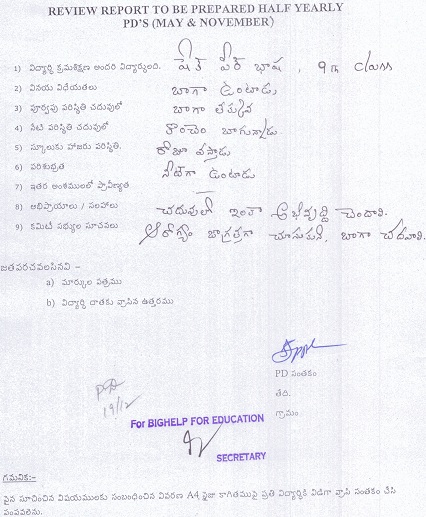 REVIEW REPORT TO BE PREPARED HALF YEARLY
PD'S (MAY & NOVEMBER)
1) విద్యార్థి క్రమశిక్షణ అందరి విద్యార్థులది. షేక్ పీర్ భాష, 9th class
2) వినయ విధేయతలు బాగా ఉంటాడు
3) పూర్వపు పరిస్థితి చదువులో బాగా తక్కువ
4) నేటి పరిస్థితి చదువులో కొంచెం బాగున్నాడు
5) స్కూలుకు హాజరు పరిస్థితి. రోజూ వస్తాడు
6) పరిశుభ్రత నీట్‌గా ఉంటాడు
7) ఇతర అంశములలో ప్రావీణ్యత
8) అభిప్రాయాలు / సలహాలు చదువులో ఇంకా అభివృద్ధి చెందాలి.
9) కమిటీ సభ్యుల సూచనలు ఆరోగ్యం జాగ్రత్తగా చూసుకుని, బాగా చదవాలి.
జతపరచవలసినవి -
a) మార్కుల పత్రము
b) విద్యార్థి దాతకు వ్రాసిన ఉత్తరము
PD సంతకం
తేది.
గ్రామం
19/12
For BIGHELP FOR EDUCATION
SECRETARY
గమనిక:-
పైన సూచించిన విషయములకు సంబంధించిన వివరణ A4 సైజు కాగితముపై ప్రతి విద్యార్థికి విడిగా వ్రాసి సంతకం చేసి
పంపవలెను.